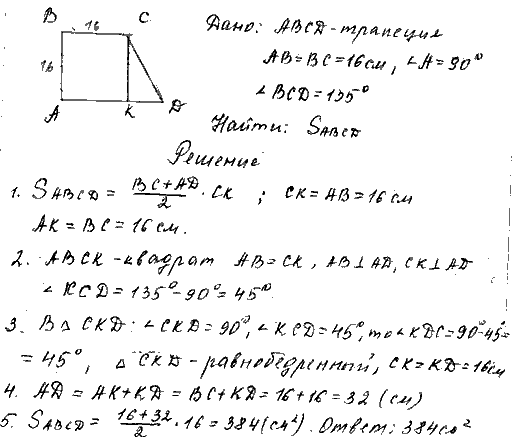 B 16 C
16
A K D
Дано: ABCD - трапеция
AB = BC = 16 см, ∠A = 90°
∠BCD = 135°
Найти: SABCD
Решение
1. SABCD = BC + AD / 2 · CK ; CK = AB = 16 см
AK = BC = 16 см.
2. ABCK - квадрат AB = CK, AB ⊥ AD, CK ⊥ AD
∠KCD = 135° - 90° = 45°
3. В △ CKD: ∠CKD = 90°, ∠KCD = 45°, то ∠KDC = 90° - 45° =
= 45°, △ CKD - равнобедренный, CK = KD = 16 см
4. AD = AK + KD = BC + KD = 16 + 16 = 32 (см)
5. SABCD = 16 + 32 / 2 · 16 = 384 (см²). Ответ: 384 см²